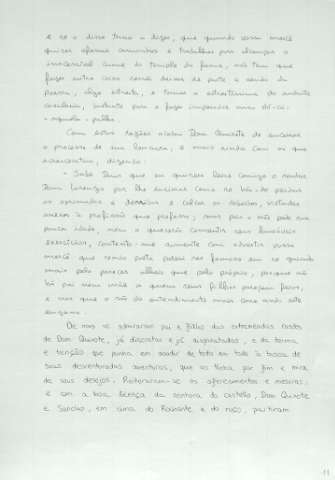 e se o disse torno a dizer, que quando vossa mercê
quiser aforrar caminhos e trabalhos para alcançar o
inacessível cume do templo da fama, não tem que
fazer outra coisa senão deixar de parte a senda da
poesia, algo estreita, e tomar a estreitíssima da andante
cavalaria, bastante para o fazer imperador num dá-cá-
-aquela-palha.
Com estas razões acabou Dom Quixote de encerrar
o processo da sua loucura, e mais ainda com as que
acrescentou, dizendo:
- Sabe Deus que eu quisera levar comigo o senhor
Dom Lorenzo para lhe ensinar como se hão-de perdoar
os sujeitos e calcar os soberbos, virtudes
anexas à profissão que professo; mas pois o não pede sua
pouca idade, nem o quererão consentir seus louváveis
exercícios, contento-me somente com advertir vossa
mercê que sendo poeta poderá ser famoso se se guiar
mais pelo parecer alheio que pelo próprio, porque não
há pai nem mãe a quem seus filhos pareçam feios,
e nos que o são do entendimento mais corre ainda este
engano.
De novo se admiraram pai e filho das entremetidas razões
de Dom Quixote, já discretas e já disparatadas, e da teima
e tenção que punha em acudir de todo em todo à busca de
suas desventuradas aventuras, que as tinha por fim e mira
de seus desejos. Reiteraram-se os oferecimentos e mesuras,
e com a boa licença da senhora do castelo, Dom Quixote
e Sancho, em cima do Rocinante e do ruço, partiram
11